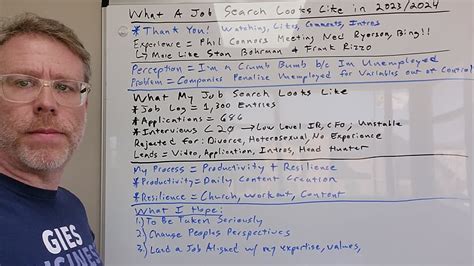 What A Job Search Looks Like in 2023/2024
* Thank You! Watching, Likes, Comments, Intros
Experience = Phil Connors Meeting Ned Ryerson, Bing!!
↳ More Like Stan Bohrman + Frank Rizzo
Perception = I'm a Crumb Bumb b/c Im Unemployed
Problem = Companies Penalize Unemployed for Variables out of Control
What My Job Search Looks Like
* Job Log = 1,300 Entries
* Applications = 686
* Interviews < 20 → Low Level IR, CFO; Unstable
Rejected for: Divorce, Heterosexual, No Experience
Leads = Video, Application, Intros, Head Hunter
My Process = Productivity + Resilience
* Productivity = Daily Content Creation
* Resilience = Church, Workout, Content
What I Hope:
1) To Be Taken Seriously
2) Change Peoples Perspectives
3) Land a Job Aligned w/ my expertise, values,
GIES